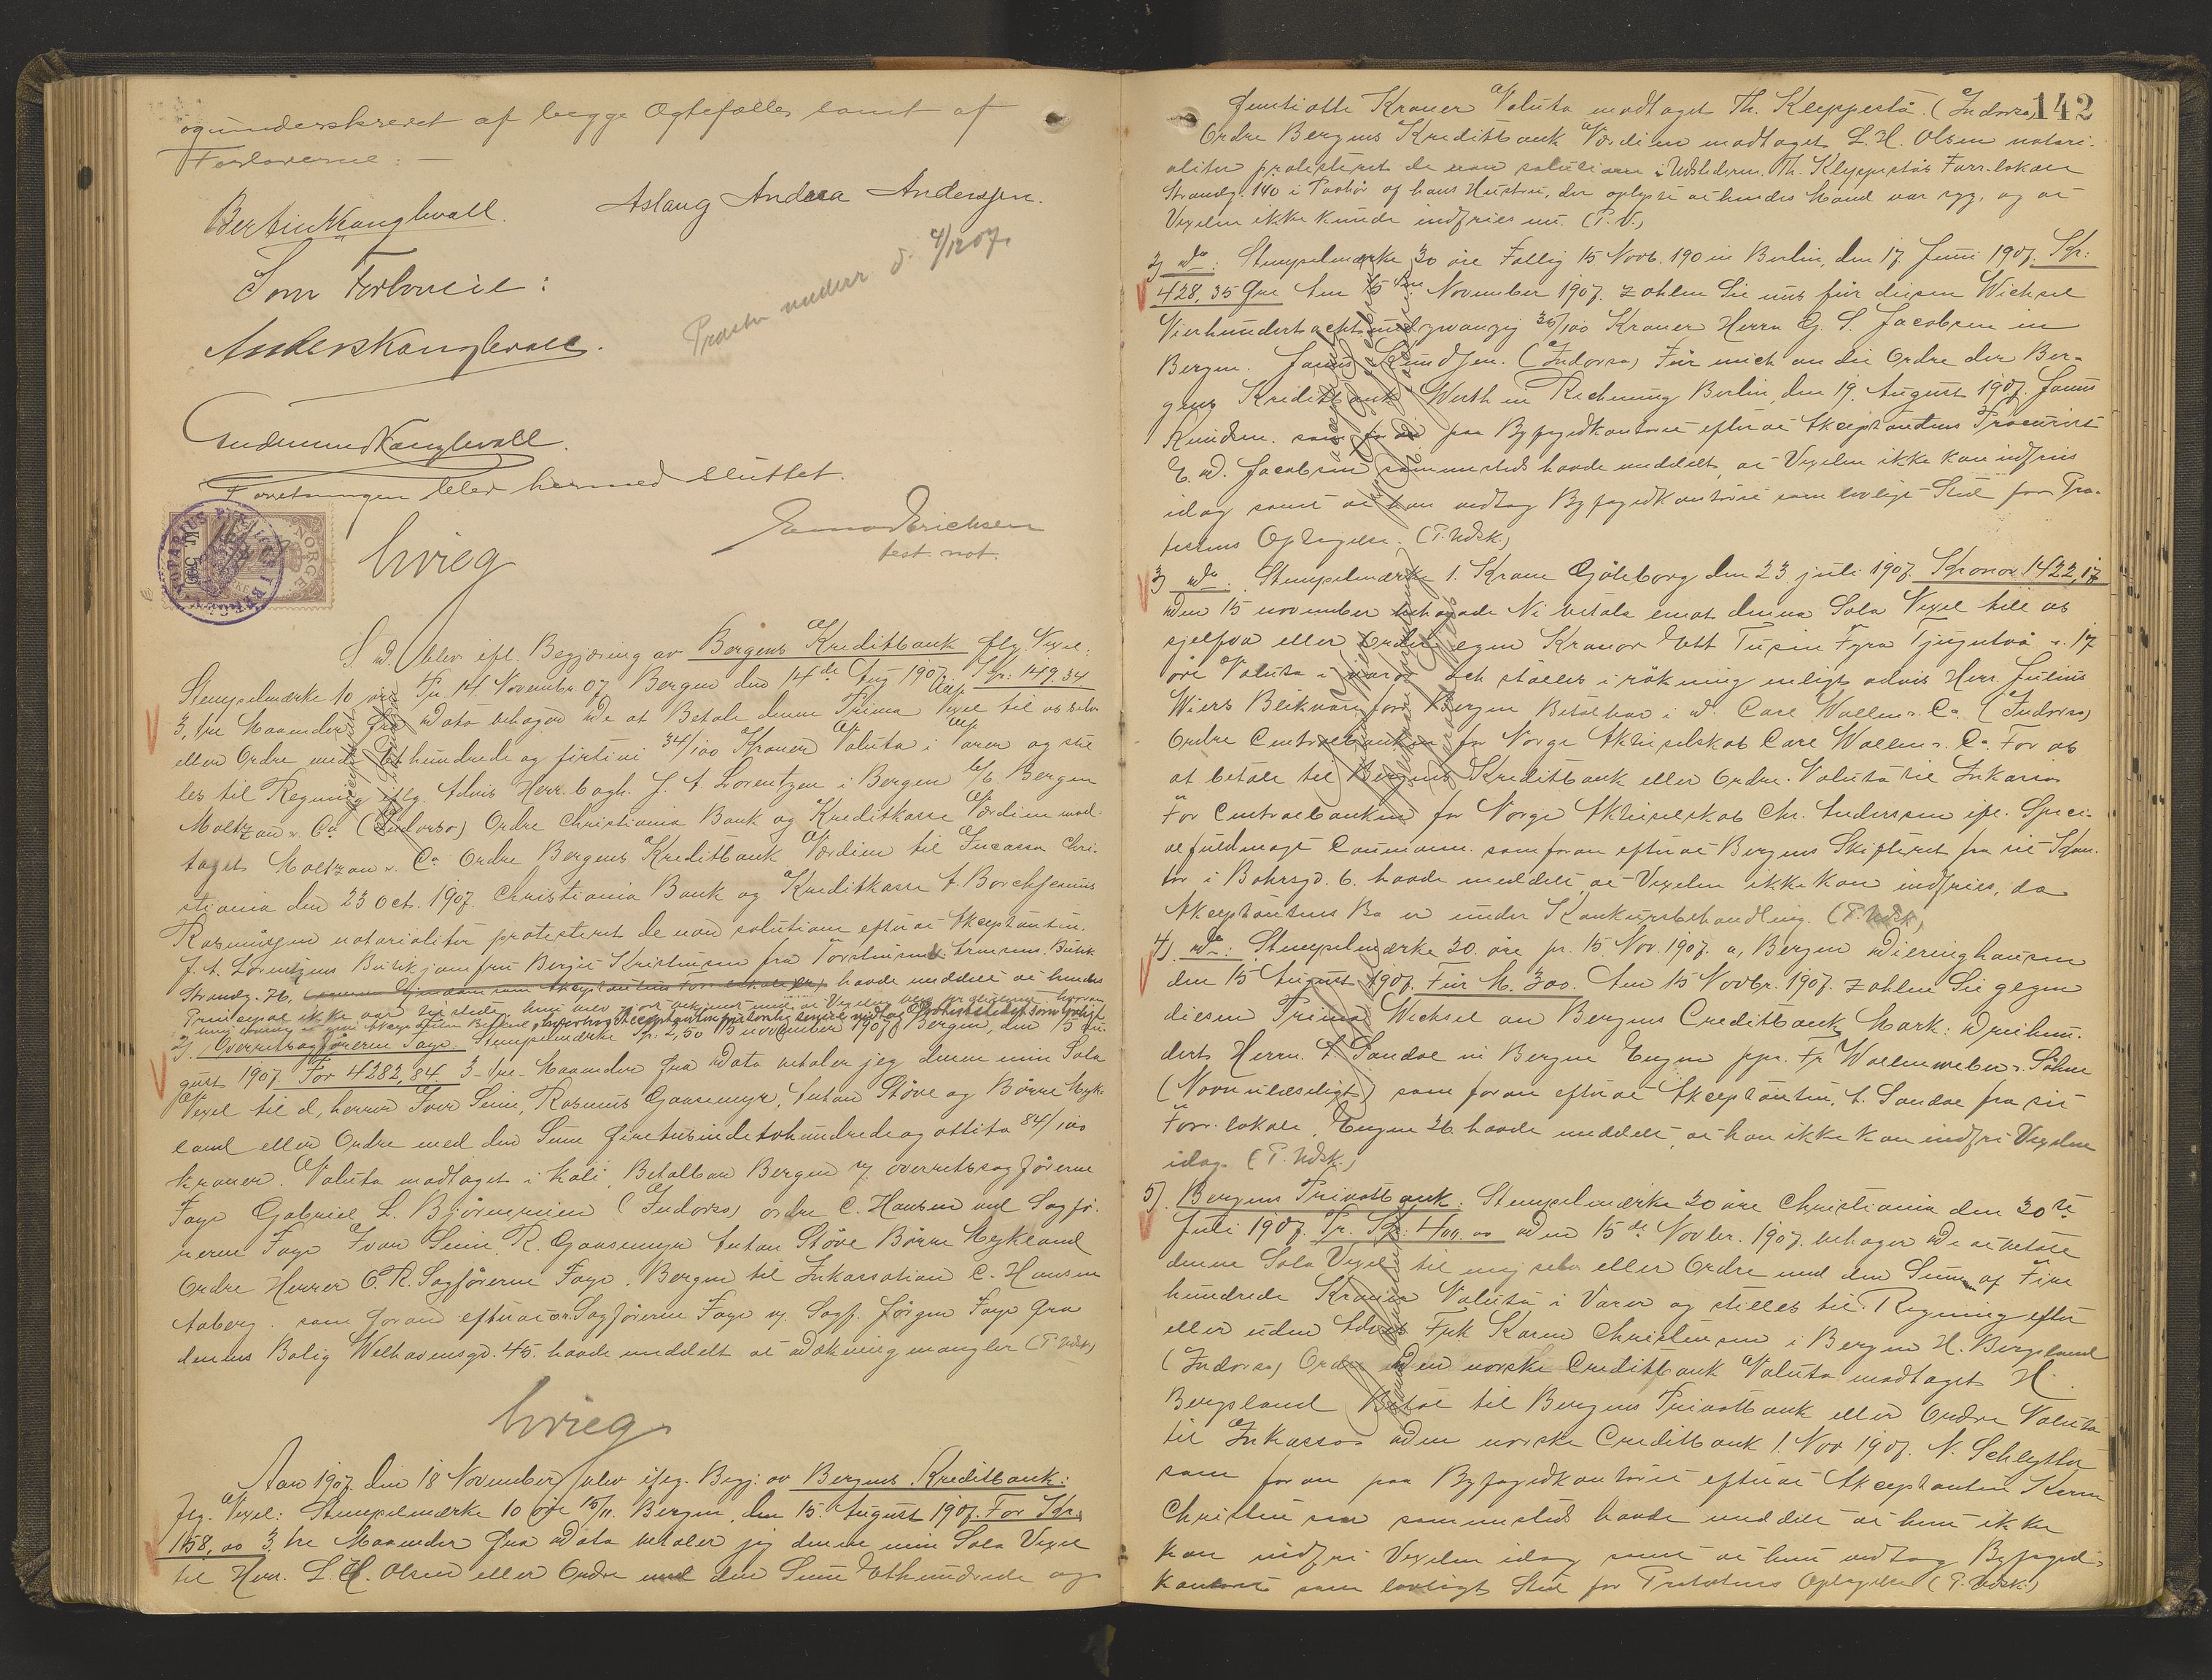 og underskrevet af begge Ægtefæller samt af
Forloverne: —
Aslaug Andrea Anderssen.
Som Forlovere:
4/12 07.
Forretningen blev hermed sluttet.
test. not.
NORGE
S. D. blev ifl. Begjæring av Bergens Kreditbank flg. Vexel:
Stempelmærke 10 øre Pr. 14. Novembr. 07 Bergen den 14de Aug. 1907 Kr: 149.34
3, tre Maaneder fra Dato behager De at Betale denne Prima Vexel til os selv
eller Ordre med Ethundrede og firtini 34/100 Kroner Valuta i Varer og stil
les til Regning iflg. Advis Herr. J. A. Lorentzen i Bergen Bergen
Moltzau & Co (Endorso) Ordre Christiania Bank og Kreditkasse Værdien mod-
taget Moltzau & Co Ordre Bergens Kreditbank Værdien til Incasso Chri-
stiania den 23 Oct. 1907. Christiania Bank og Kreditkasse A. Borchgrevink
Rasmussen notarialiter protesteret de non solutione efterat Akceptanten,
J. A. Lorentzens Butikjomfru Kristensen fra Butik
Strandg. 76, havde meddelt at hendes
Principal ikke var tilstede,
2). Overretssagførerne Faye: Stempelmærke Kr. 2,50 15 november 1907 Bergen, den 15 Au-
gust 1907. For 4282,84. 3 - tre - Maaneder fra Dato betaler jeg denne min Sola
Vexel til d, herrer Iver Seim, Rasmus Gaasemyr, Anton Støve og Børre Myk-
land eller Ordre med den Sum firetusindetohundredeogottito 84/100
kroner. Valuta modtaget i Betalbar Bergen v/ overretssagførerne
Faye Gabriel L. Bjørnereim (Indorso) ordre C. Hansen ved Sagfø-
rerne Faye Ivar Seim, R. Gaasemyr Anton Støve Børre Mykland
Ordre Herrer O. R. Sagførerne Faye, Bergen til Inkassation C. Hansen
Aaberg. som foran efterat or. Sagførerne Faye v/ Sagf. Jørgen Faye fra
dennes Bolig Welhavensgd. 45. havde meddelt at Dækning mangler (P. Udsk)
Aar 1907. den 18 November blev iflg. Begj: av Bergens Kreditbank:
flg. Vexel: Stempelmærke 10 øre 15/11. Bergen, den 15. August 1907. For Kr.
158,00 3, tre Maaneder fra Dato betaler jeg denne min Sola Vexel
til Herr. L. H. Olsen eller Ordre med den Sum Ethundrede og
142
femtiotte Kroner Valuta modtaget Th. Kleppestø. (Indorso)
Ordre Bergens Kreditbank Værdien modtaget L. H. Olsen notari-
aliter protesteret de non solutione i Udstederen Th. Kleppestøs Forr. lokale
Strandg. 140 i Paahør af hans Hustru, der oplyste at hendes Mand var syg, og at
Vexelen ikke kunde indfries nu. (P. U.)
2) do: Stempelmærke 30 øre Fällig 15 Novb. 190 in Berlin, den 17. Juni 1907. Kr:
428,35 Öre Am 15ten November 1907. zahlen Sie uns für diesen Wechsel
Vierhundertachtundzwanzig 35/100 Kroner Herrn G. S. Jacobsen in
Bergen. Knudsen. (Indorso) Für mich an die Ordre der Ber-
gens Kreditbank Werth in Rechnung Berlin, den 19. August 1907.
Knudsen. som foran paa Byfogedkontoret efterat Akceptantens Procurist
E. D. Jacobsen sammesteds havde meddelt, at Vexelen ikke kan indfries
idag samt at han vedtog Byfogedkontoret som lovligt Sted for Pro-
testens Optagelse. (P. Udsk.)
3) do. Stempelmærke 1. Krone Göteborg den 23. juli 1907. Kronor 1422,17
Den 15 november behagade Ni betala emot denna Sola Vexel till os
sjelfva eller Ordre egen Kronor Ett Tusen Fyra Tjugutvå & 17
öre Valuta i varor och ställes i räkning enligt advis Herr. Julius
Wiers Blikvareforr. Bergen Betalbar i D. Carl Wallin & Co. (Indorso)
Ordre Centralbanken for Norge Aktieselskab Carl Wallin & Co. For os
at betale til Bergens Kreditbank eller Ordre. Valuta til Inkasso
For Centralbanken for Norge Aktieselskab Chr. Anderssen ifl. Speci-
alfuldmagt som foran efterat Bergens Skifteret fra sit Kon-
tor i Bohrsgd. 6. havde meddelt, at Vexelen ikke kan indfries, da
Akceptantens Bo er under Konkursbehandling. (P. Udsk.)
4). do: Stempelmærke 20. øre pr. 15. Nov. 1907. a, Bergen Dieringhausen
den 15 August 1907. Für M. 300. Am 15 Novbr. 1907. zahlen Sie gegen
diesen Prima Wechsel an Bergens Creditbank, Mark: Dreihun-
dert Herrn. A. Sandal in Bergen Engen ppr. Fr Wollenweber & Söhne
(Navn ulæseligt) som foran efterat Akceptanten, A. Sandal fra sit
Forr. lokale, Engen 26 havde meddelt, at han ikke kan indfri Vexelen
idag. (P. Udsk.)
5). Bergens Privatbank: Stempelmærke 20 øre Christiania den 30te
Juli 1907. Pr. Kr: 400.00 Den 15de Novbr. 1907. behager De at betale
denne Sola Vexel til mig selv eller Ordre med den Sum af Fire
hundrede Kroner Valuta i Varer og stilles til Regning efter
eller uden Advis Frk Karen Christensen i Bergen H. Bergsland
(Indorso) Ordre Den norske Creditbank Valuta modtaget H.
Bergsland Betal til Bergens Privatbank eller Ordre Valuta
til Inkasso Den norske Creditbank 1. Nov 1907. N. Schlytter
som foran paa Byfogedkontoret efterat Akceptanten Karen
Christensen sammesteds havde meddelt at hun ikke
kan indfri Vexelen idag samt at hun vedtog Byfoged-
kontoret som lovligt Sted for Protestens Optagelse (P. Udsk.)